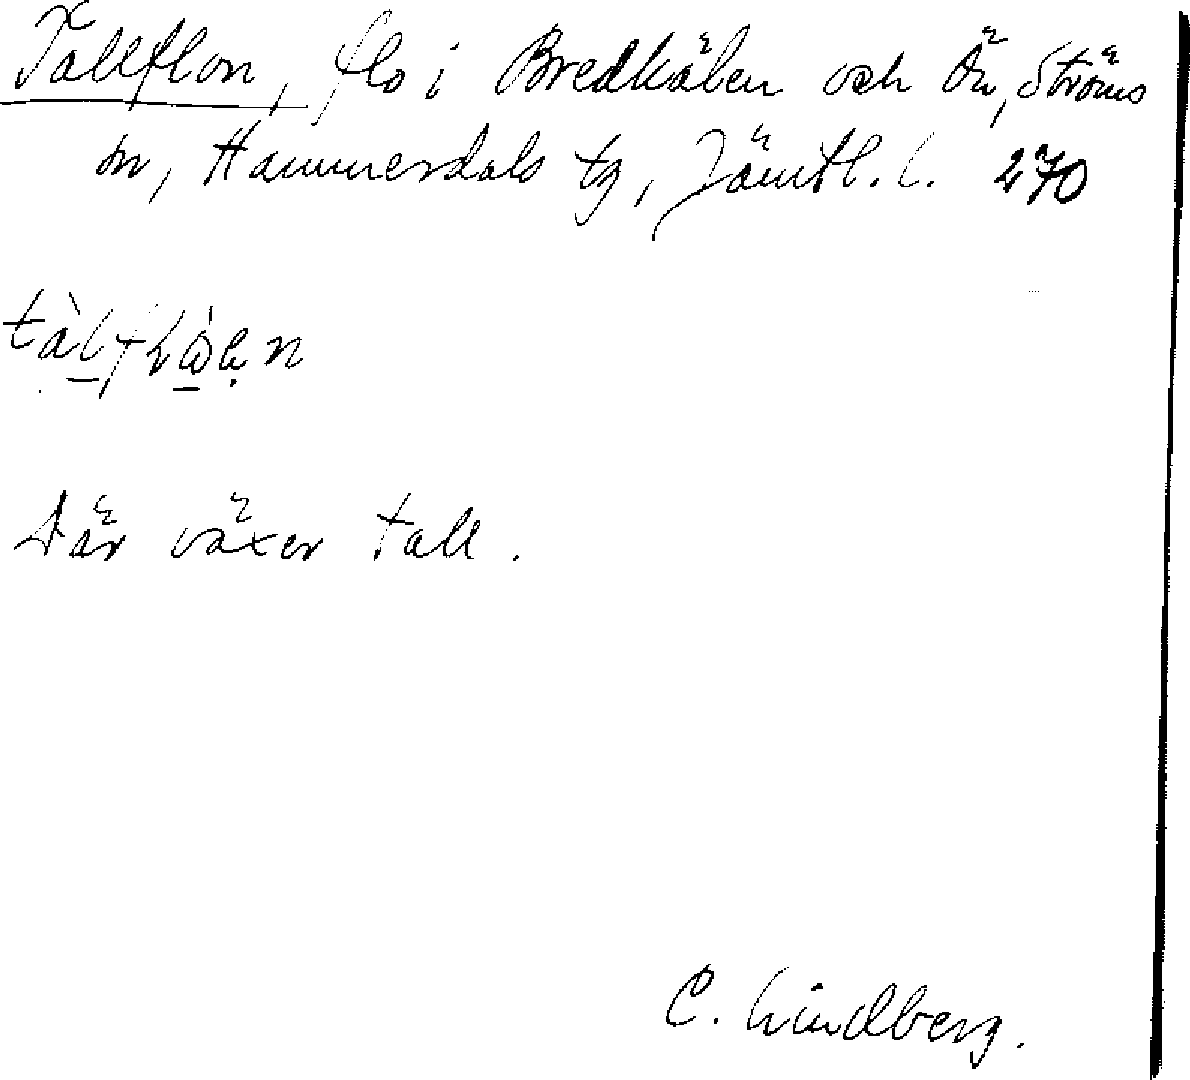 Tallflon, flo i Bredkälen och Ön, Ströms
sn, Hammerdals tg, Jämtl. l. 270
Där växer tall.
C. Lindberg.